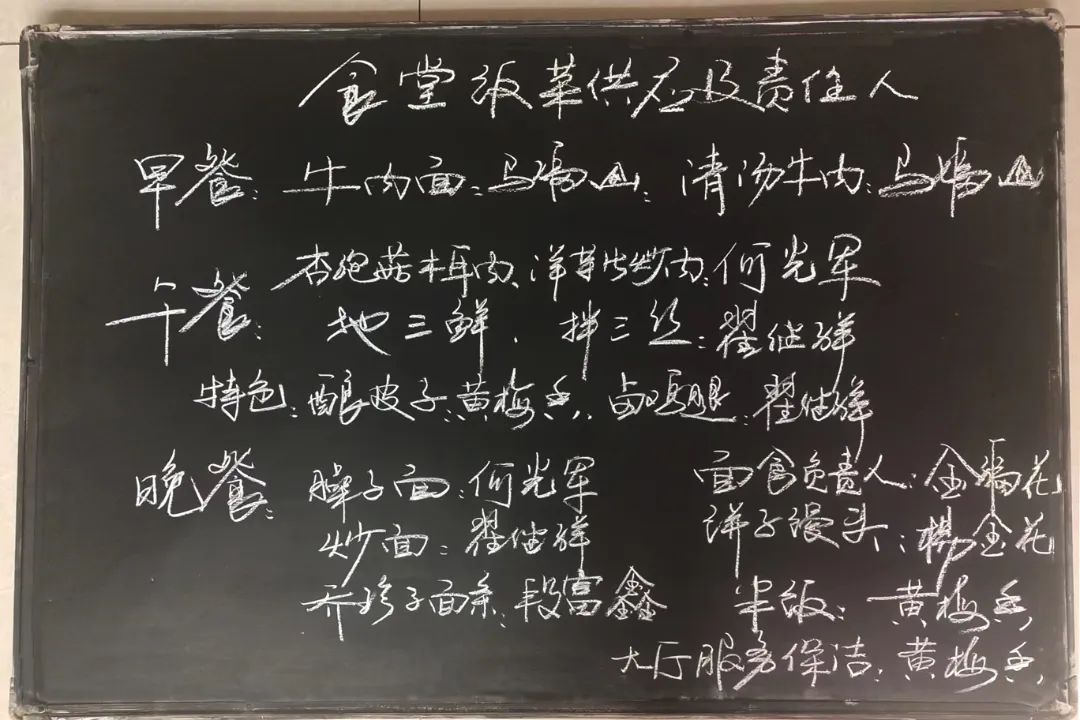 食堂饭菜供应及责任人
早餐：牛肉面：马福山；清汤牛肉：马福山
杏鲍菇木耳肉、洋芋片炒肉：何光军
午餐：地三鲜、拌三丝：翟继祥
特色：酿皮子：黄梅香、卤鸡腿：翟继祥
晚餐：臊子面：何光军
面食负责人：金福花
炒面：翟继祥
饼子馒头：杨金花
子面条：段富鑫
米饭：黄梅香
大厅服务保洁：黄梅香